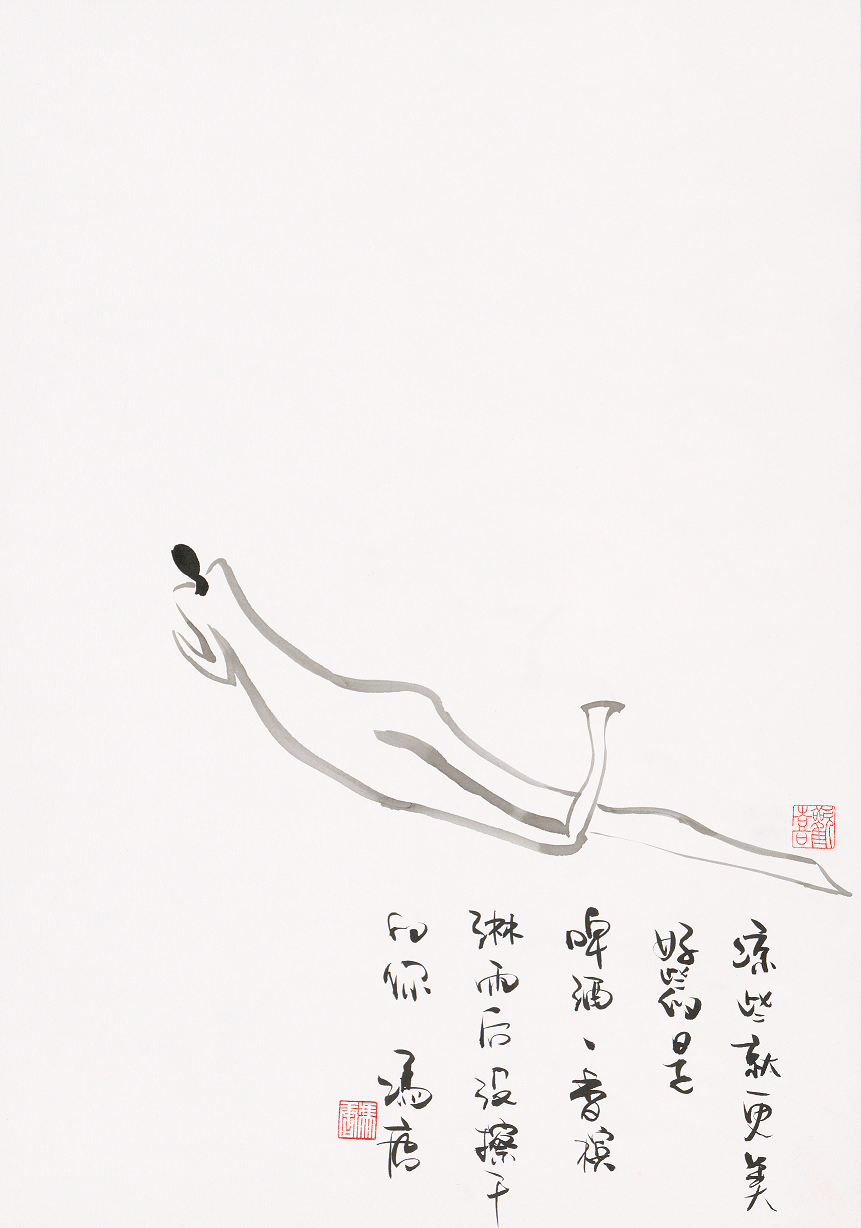 凉些就更美
好些的是
啤酒、香槟
淋雨后没擦干
的你 冯唐